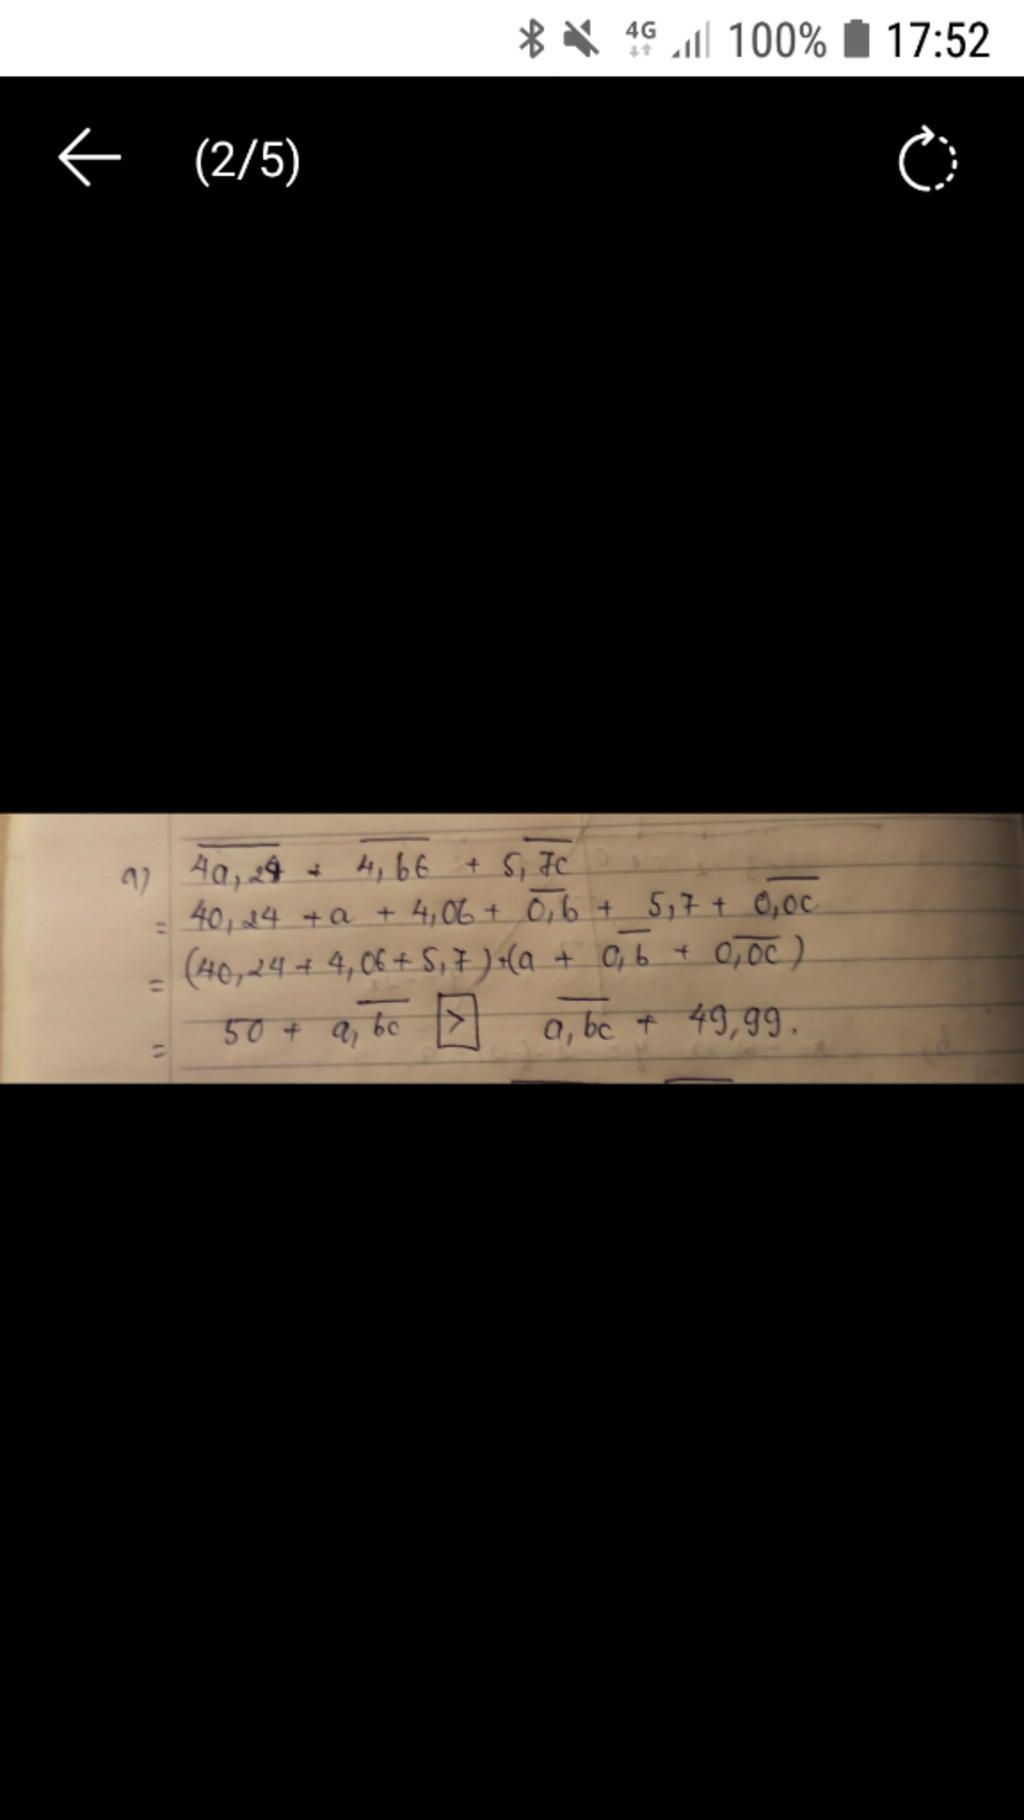 4G 100% 17:52
(2/5)
a) 4a,24 + 4,b6 + 5,7c
= 40,24 + a + 4,06 + 0,b + 5,7 + 0,0c
= (40,24 + 4,06 + 5,7) + (a + 0,b + 0,0c)
= 50 + a,bc > a,bc + 49,99.